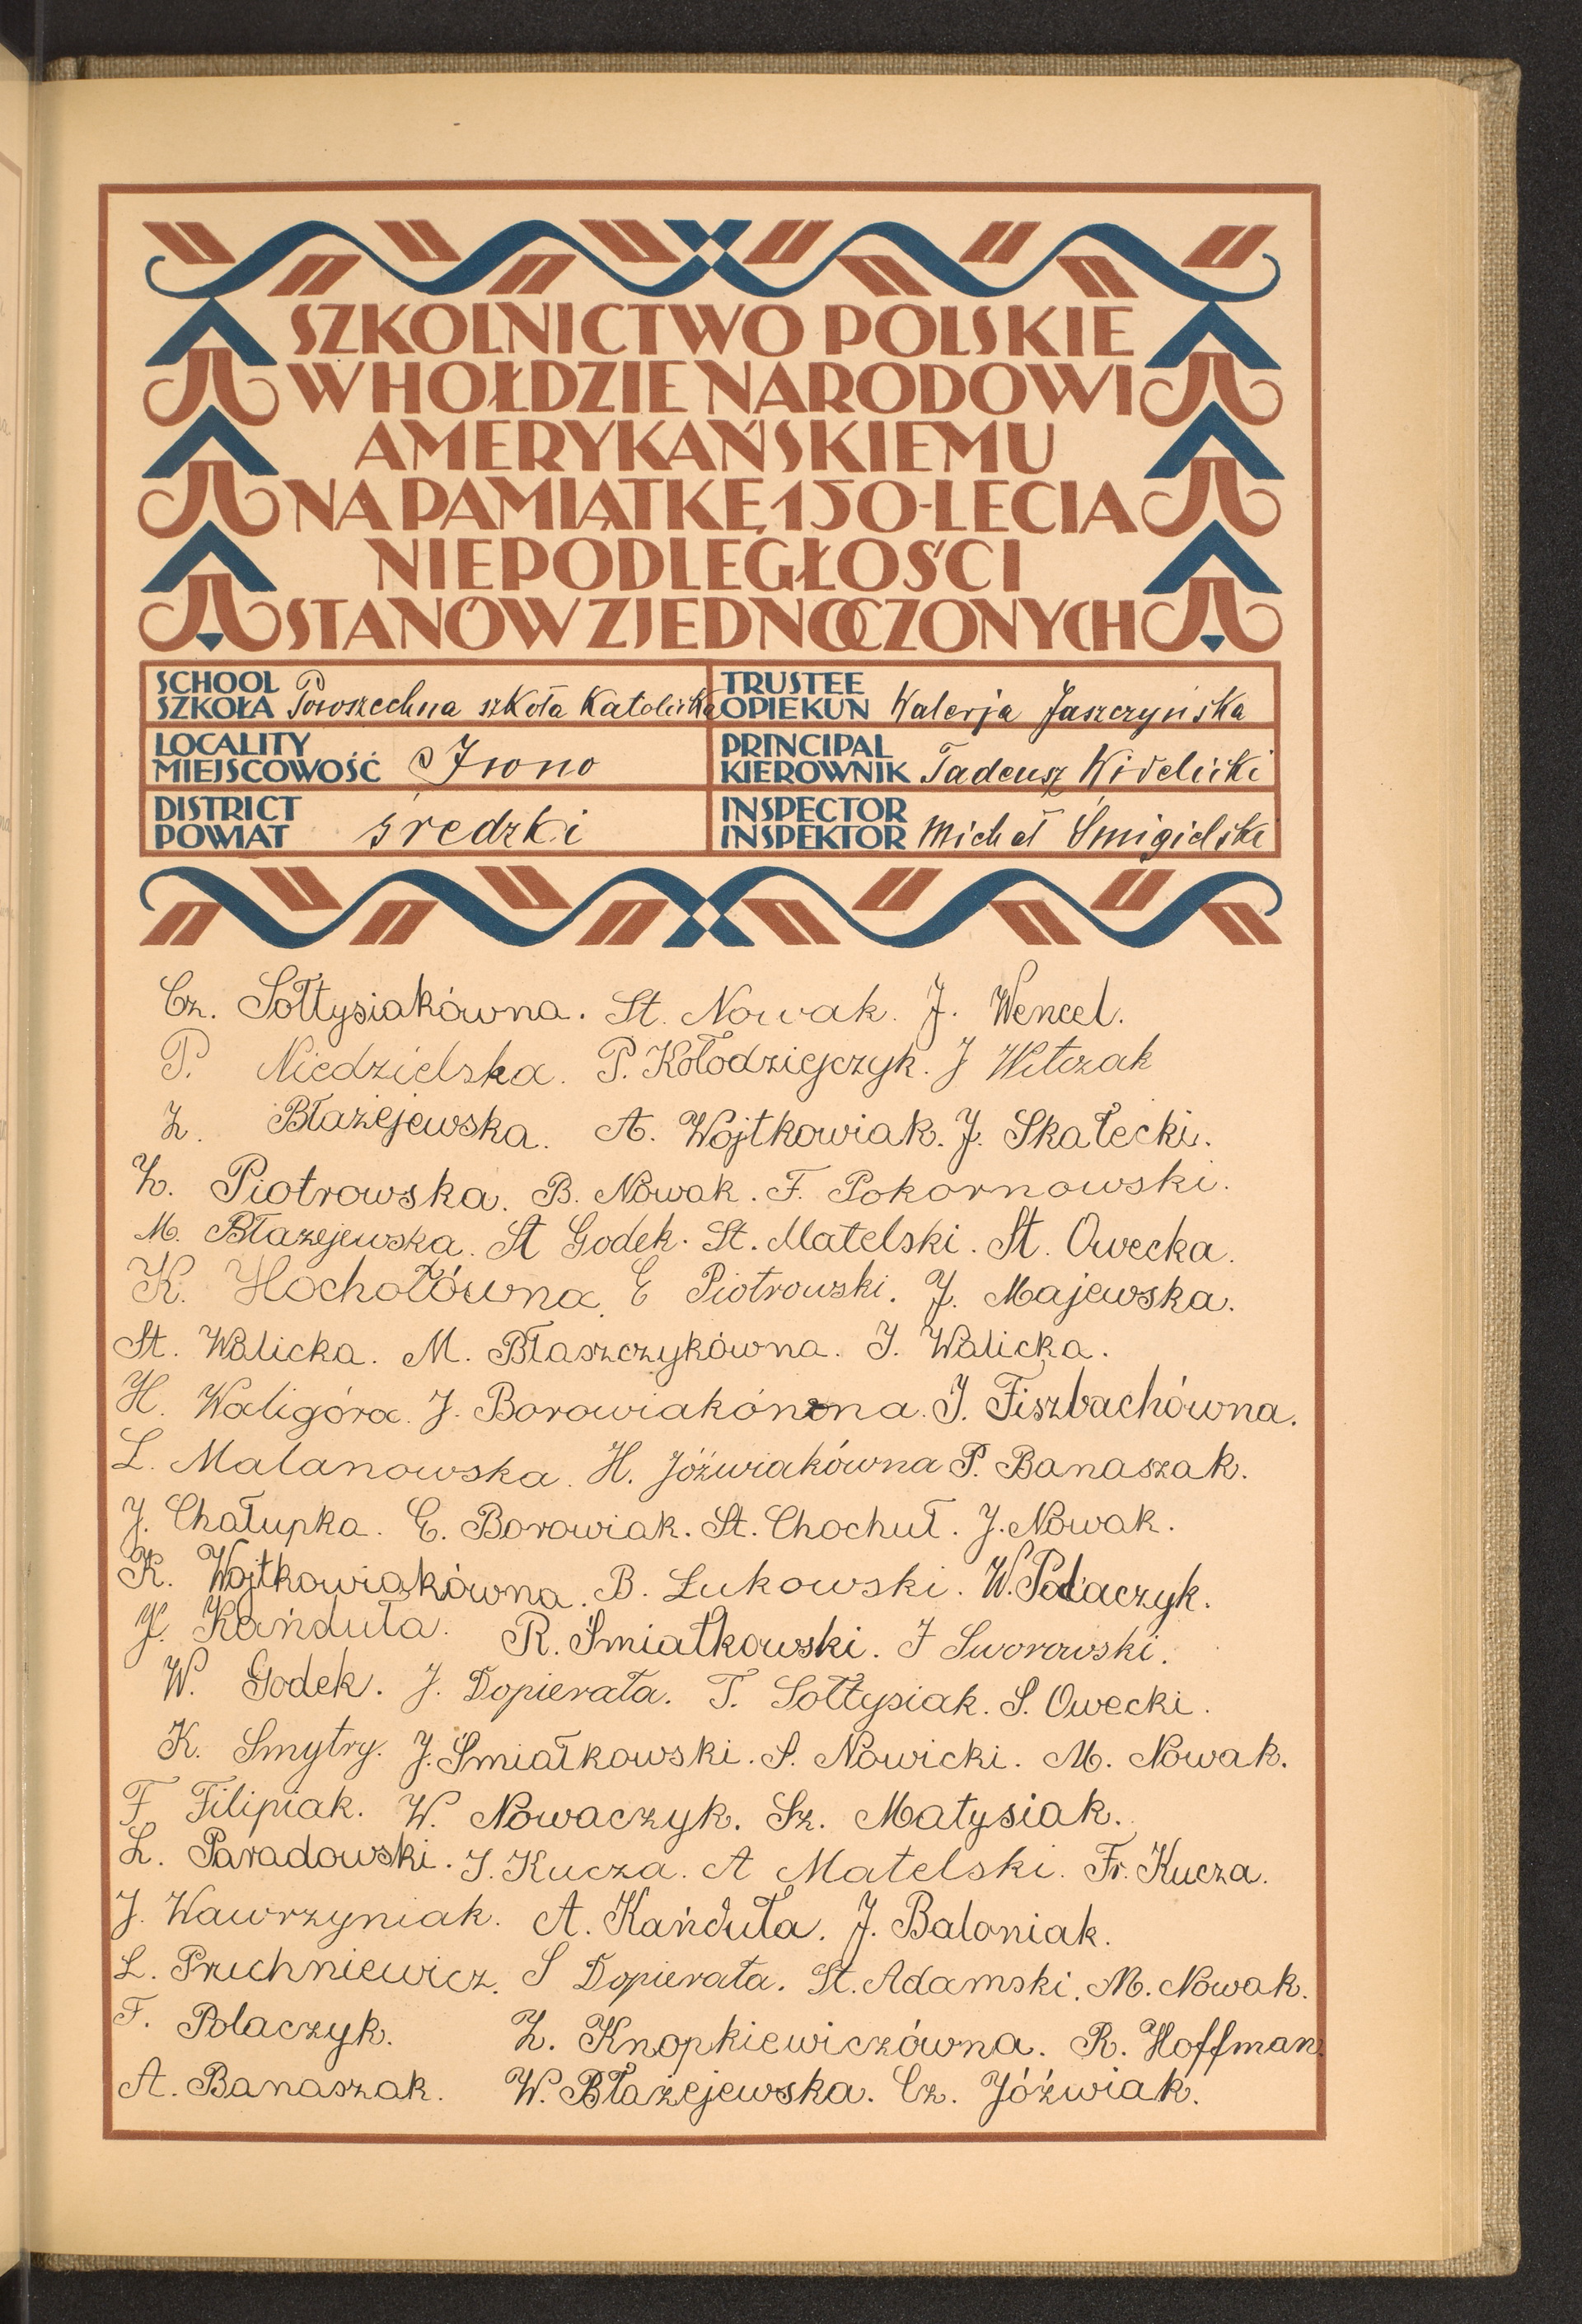 SZKOLNICTWO POLSKIE
W HOŁDZIE NARODOWI
AMERYKAŃSKIEMU
NA PAMIĄTKĘ 150-LECIA
NIEPODLEGŁOŚCI
STANÓW ZJEDNOCZONYCH
SCHOOL
SZKOŁA Powszechna szkoła Katolicka
TRUSTEE
OPIEKUN Walerja Jaszczyńska
LOCALITY
MIEJSCOWOŚĆ Iwno
PRINCIPAL
KIEROWNIK Tadeusz Widelicki
DISTRICT
POWIAT średzki
INSPECTOR
INSPEKTOR Michał Śmigielski
Cz. Sołtysiakówna. St. Nowak. J. Wencel.
P. Niedzielska. P. Kołodziejczyk. J Witczak
Z. Błażejewska. A. Wojtkowiak. J. Skałecki.
Z. Piotrowska. B. Nowak. F. Pokornowski.
M. Błażejewska. St Godek. St. Matelski. St. Owecka.
K. Hochołówna. E Piotrowski. J. Majewska.
St. Walicka. M. Błaszczykówna. I. Walicka.
H. Waligóra. J. Borowiakówna. I. Fiszbachówna.
L. Malanowska. H. Jóźwiakówna P. Banaszak.
J. Chałupka. E. Borowiak. St. Chochuł. J. Nowak.
K. Wojtkowiakówna. B. Lukowski. W. Polaczyk.
J. Kańduła. R. Śmiałkowski. I Sworowski.
W. Godek. J. Dopierała. T. Sołtysiak. S. Owecki.
K. Smytry. J. Śmiałkowski. S. Nowicki. M. Nowak.
F Filipiak. W. Nowaczyk. Sz. Matysiak.
L. Paradowski. I. Kucza. A Matelski. Fr. Kucza.
J. Wawrzyniak. A. Kańduła. J. Baloniak.
L. Pruchniewicz. S Dopierała. St. Adamski. M. Nowak.
F. Polaczyk. Z. Knopkiewiczówna. R. Hoffman.
A. Banaszak. W. Błażejewska. Cz. Jóźwiak.